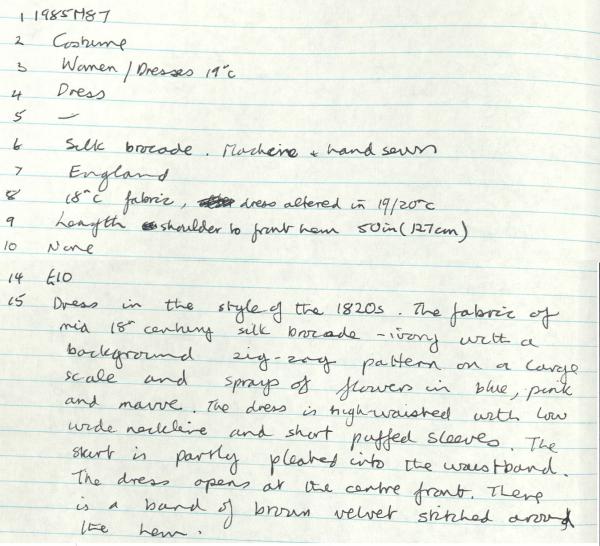 1 1985M87
2 Costume
3 Women / Dresses 19"c
4 Dress
5 —
6 Silk brocade. Machine + hand sewn
7 England
8 18"c fabric, dress altered in 19/20"c
9 Length shoulder to front hem 50in (127cm)
10 None
14 £10
15 Dress in the style of the 1820s. The fabric of
mid 18" century silk brocade - ivory with a
background zig-zag pattern on a large
scale and sprays of flowers in blue, pink
and mauve. The dress is high-waisted with low
wide neckline and short puffed sleeves. The
skirt is partly pleated into the waistband.
The dress opens at the centre front. There
is a band of brown velvet stitched around
the hem.